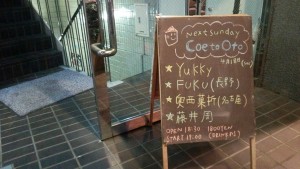 Next Sunday
Coe to Oto
4月18日(sun)
★Yukky
★FUKU(長野)
★奥西菓折(名古屋)
★藤井周
OPEN 18:30 1800yen
START 19:00 (DRINK別)